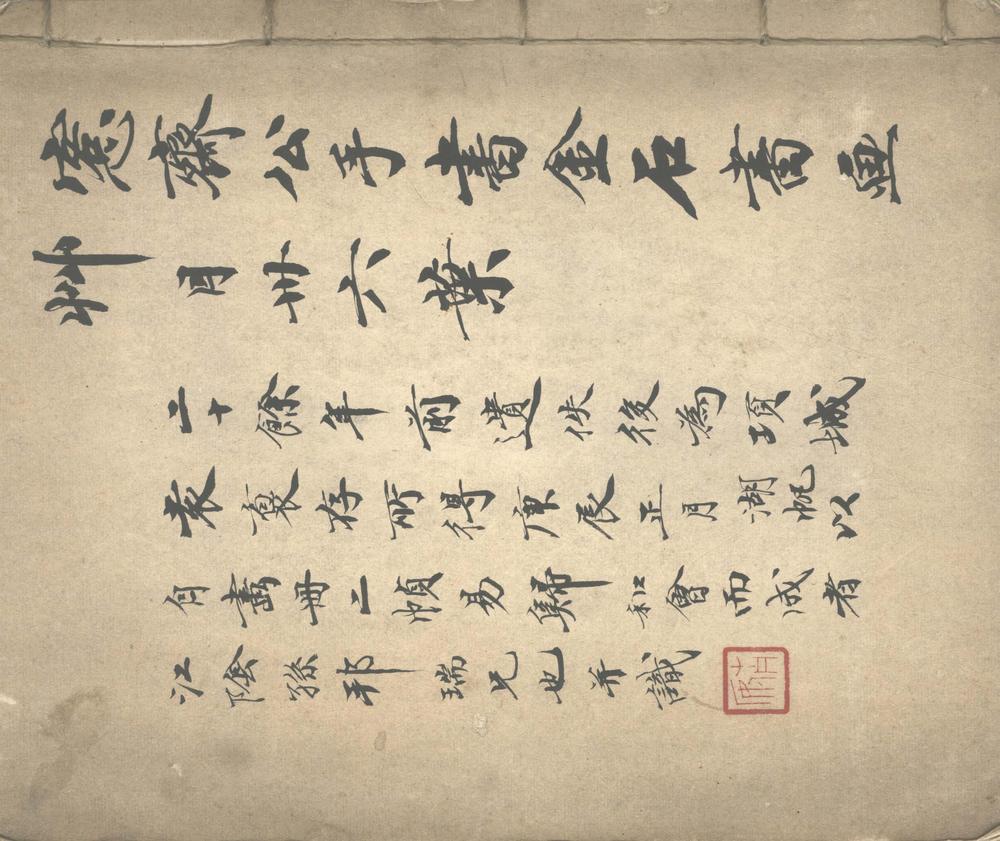 愙齋公手書金石書畫
艸目卅六葉
二十餘年前遺佚後為項城
袁存所得庚辰正月湖帆以
自畫冊二幀易歸和會而成者
江陰孫邦瑞兄也并識